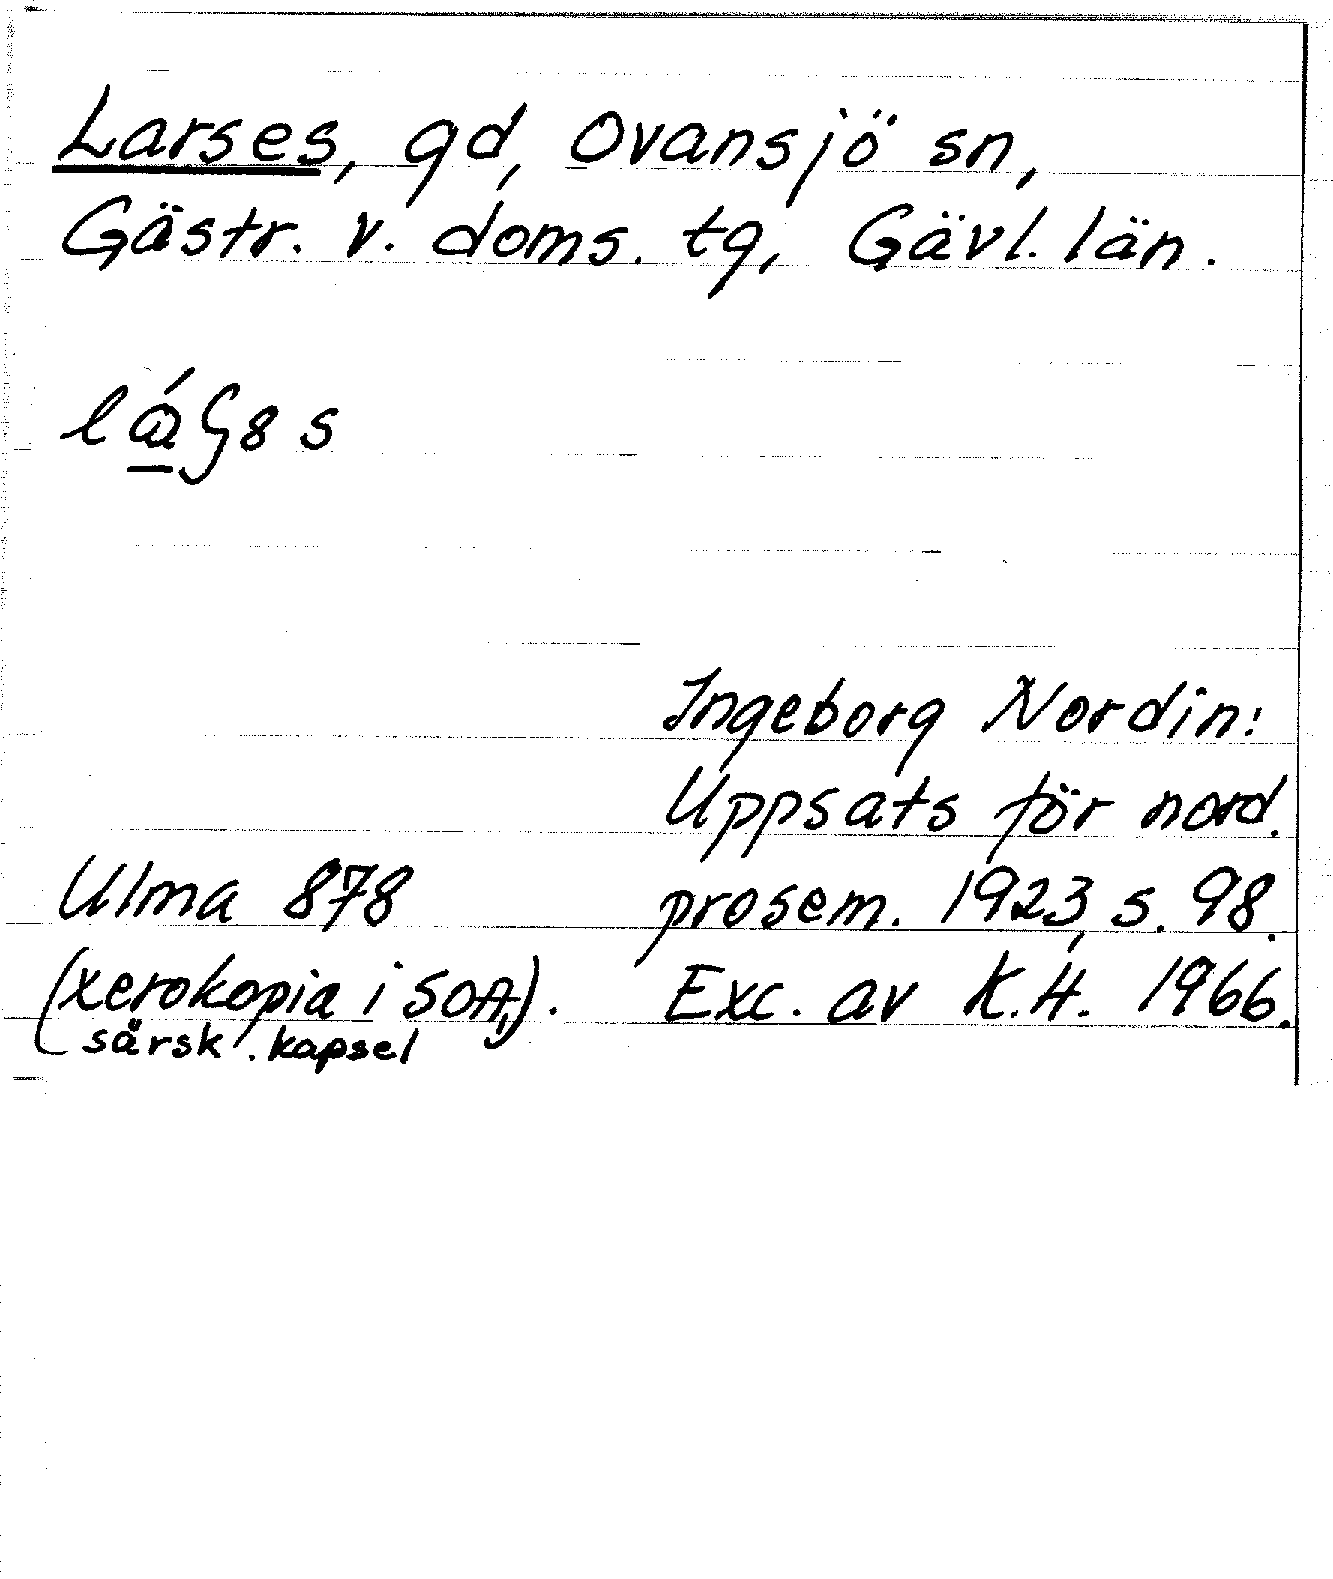 Larses, gd, Ovansjö sn,
Gästr. v. doms. tg, Gävl. län.
Ingeborg Nordin:
Uppsats för nord.
Ulma 878 prosem. 1923, s. 98.
(xerokopia i SOA,). Exc. av K.H. 1966.
särsk. kapsel